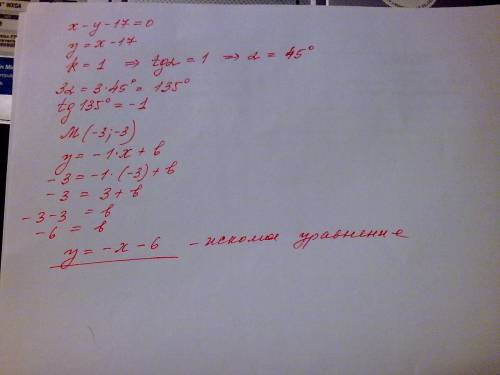 x - y - 17 = 0
y = x - 17
k = 1 ⇒ tgα = 1 ⇒ α = 45°
3α = 3·45° = 135°
tg 135° = -1
M(-3; -3)
y = -1·x + b
-3 = -1·(-3) + b
-3 = 3 + b
-3-3 = b
-6 = b
y = -x - 6 - искомое уравнение